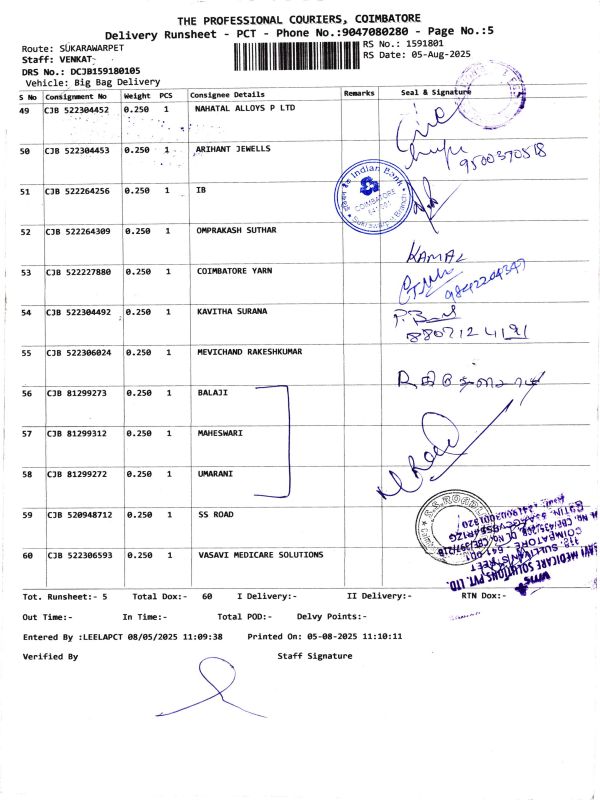 THE PROFESSIONAL COURIERS, COIMBATORE
Delivery Runsheet - PCT - Phone No.:9047080280 - Page No.:5
Route: SUKARAWARPET
RS No.: 1591801
Staff: VENKAT
RS Date: 05-Aug-2025
DRS No.: DCJB159180105
Vehicle: Big Bag Delivery
S No Consignment No Weight PCS Consignee Details Remarks Seal & Signature
49 CJB 522304452 0.250 1 NAHATAL ALLOYS P LTD
50 CJB 522304453 0.250 1 ARIHANT JEWELLS
9500370518
51 CJB 522264256 0.250 1 IB
Indian Bank
COIMBATORE
52 CJB 522264309 0.250 1 OMPRAKASH SUTHAR
KAMAL
53 CJB 522227880 0.250 1 COIMBATORE YARN
9842204347
54 CJB 522304492 0.250 1 KAVITHA SURANA
8807124191
55 CJB 522306024 0.250 1 MEVICHAND RAKESHKUMAR
56 CJB 81299273 0.250 1 BALAJI
57 CJB 81299312 0.250 1 MAHESWARI
58 CJB 81299272 0.250 1 UMARANI
59 CJB 520948712 0.250 1 SS ROAD
60 CJB 522306593 0.250 1 VASAVI MEDICARE SOLUTIONS
Tot. Runsheet:- 5 Total Dox:- 60 I Delivery:- II Delivery:- RTN Dox:-
Out Time:- In Time:- Total POD:- Delvy Points:-
Entered By :LEELAPCT 08/05/2025 11:09:38 Printed On: 05-08-2025 11:10:11
Verified By Staff Signature